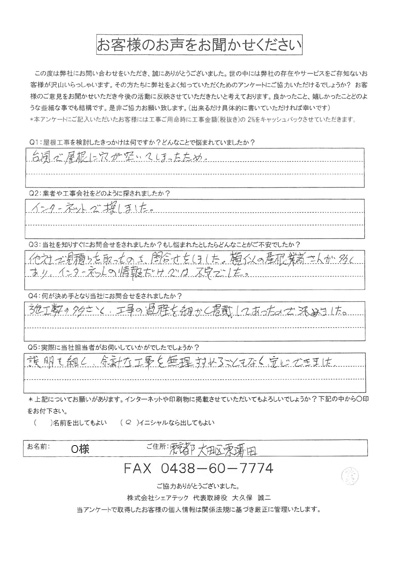 お客様のお声をお聞かせください
この度は弊社にお問い合わせをいただき、誠にありがとうございました。世の中には弊社の存在やサービスをご存知ないお
客様が沢山いらっしゃいます。その方たちに弊社をよく知っていただくためのアンケートにご協力いただけるでしょうか？ お客
様のご意見をお聞かせいただき今後の活動に反映させていただきたいと考えております。良かったこと、嬉しかったことどのよ
うな些細な事でも結構です。是非ご協力お願い致します。（出来るだけ具体的に書いていただければ幸いです）
*本アンケートにご記入いただいたお客様には工事ご用命時に工事金額(税抜き)の 2%をキャッシュバックさせていただきます。
Q1：屋根工事を検討したきっかけは何ですか？どんなことで悩まれていましたか？
台風で屋根に穴が空いてしまったため。
Q2：業者や工事会社をどのように探されましたか？
インターネットで探しました。
Q3：当社を知りすぐにお問合せをされましたか？もし悩まれたとしたらどんなことがご不安でしたか？
他社に見積りを取ったのち、問合せをしました。
インターネットの情報だけでは不安でした。
Q4：何が決め手となり当社にお問合せをされましたか？
施工数の多さと、工事の過程を細かく掲載してあったので決めました。
Q5：実際に当社担当者がお伺いしていかがでしたでしょうか？
説明も細かく、余計な工事を無理
＊上記についてお願いがあります。インターネットや印刷物に掲載させていただいてもよろしいでしょうか？下記の中から〇印
をお付下さい。
（　）名前を出してもよい （〇）イニシャルなら出してもよい
お名前: O様 ご住所: 東京都大田区東蒲田
FAX 0438-60-7774
ご協力ありがとうございました。
株式会社シェアテック 代表取締役 大久保 誠二
当アンケートで取得したお客様の個人情報は関係法規に基づき厳正に管理いたします。